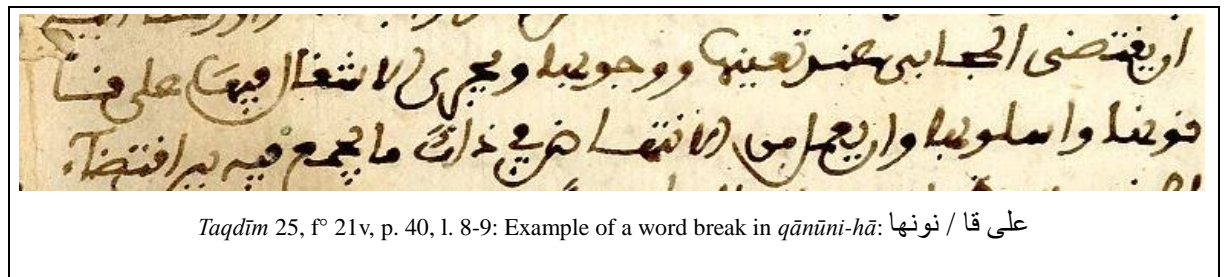 ان يقتضى المجابى عند تعينها ووجوبها ويجرى الاشغال فيها على قا
نونها واسلوبها وان يعمل من في ذلك ما يجمع فيه بين اقتضاء
Taqdīm 25, f° 21v, p. 40, l. 8-9: Example of a word break in qānūni-hā: على قا / نونها